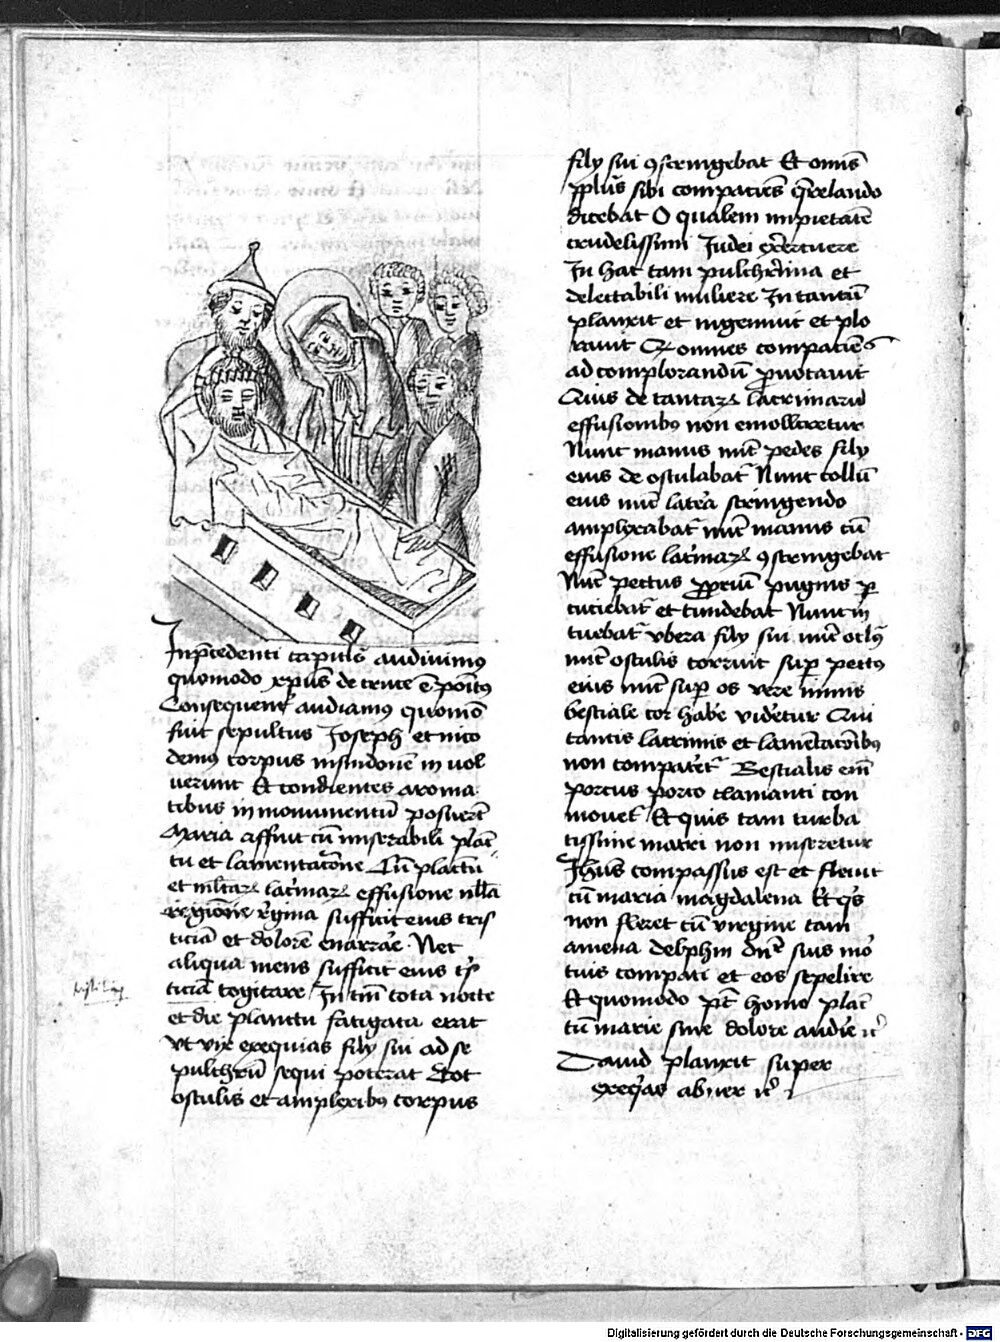 In p̄cedenti capitulo audiuimus
quomodo xp̄us de cruce ē poitus
Consequent̄ audiamus quomō
fuit sepultus Joseph et nico
demus corpus in sindonē in uol
uerunt Et condientes aroma
tibus in monumentū posuerūt
Maria affuit cū miserabili planc
tu et lamentac̄one Cū planctu
et multaꝝ lacrimaꝝ effusione nulla
regina sufficit eius tris
ticiā et dolorē enarrar̄e Nec
aliqua mens sufficit eius tris
ticiā cogitare In tm̄ tota nocte
et die planctu fatigata erat
vt vix exequias filÿ sui ad se
pulchrū sequi poterat Tot
osculis et amplexibus corpus
filÿ sui ꝯstringebat Et omīs
ppl̄us sibi compaciēs q̄relando
dicebat O qualem impietatē
crudelissimi Judei exercuere
In hac tam pulcherrima et
delectabili muliere In tantū
planxit et ingemuit et plo
rauit Qꝫ omnes compaciēs
ad complorandū ꝓuocauit
Cuius de tantaꝝ lacrimarū
effusionibus non emolliretur
Nunc manus nūc pedes filÿ
eius de osculabat̄ Nunc collū
eius nūc latera stringendo
amplexabat̄ nūc manus cū
effusione lac̄maꝝ ꝯstringebat
Nūc pectus proprium pugnis ꝑ
cuciebat̄ et tundebat Nunc in
tuebat̄ vbera filÿ sui nūc oculus
nūc osculis corruit sup̄ pectus
eius nūc sup̄ os vere nimis
bestiale cor haber̄e videtur Qui
tantis lacrimis et lamentac̄onibus
non compatet̄ Bestialis enī
porcus porco clamanti con
mouet̄ Et quis tam turba
tissime matri non miseretur
Jhūs compassus est et fleuit
cū maria magdalena Et q̄s
non fleret cū virgine tam
amena delphin dn̄r suis mor
tuis compati et eos sepelire
Et quomodo pōt homo planc
tū marie sine dolore audire rc̄
Dauid planxit super
exeq̄as abner rc̄
Digitalisierung gefördert durch die Deutsche Forschungsgemeinschaft - DFG